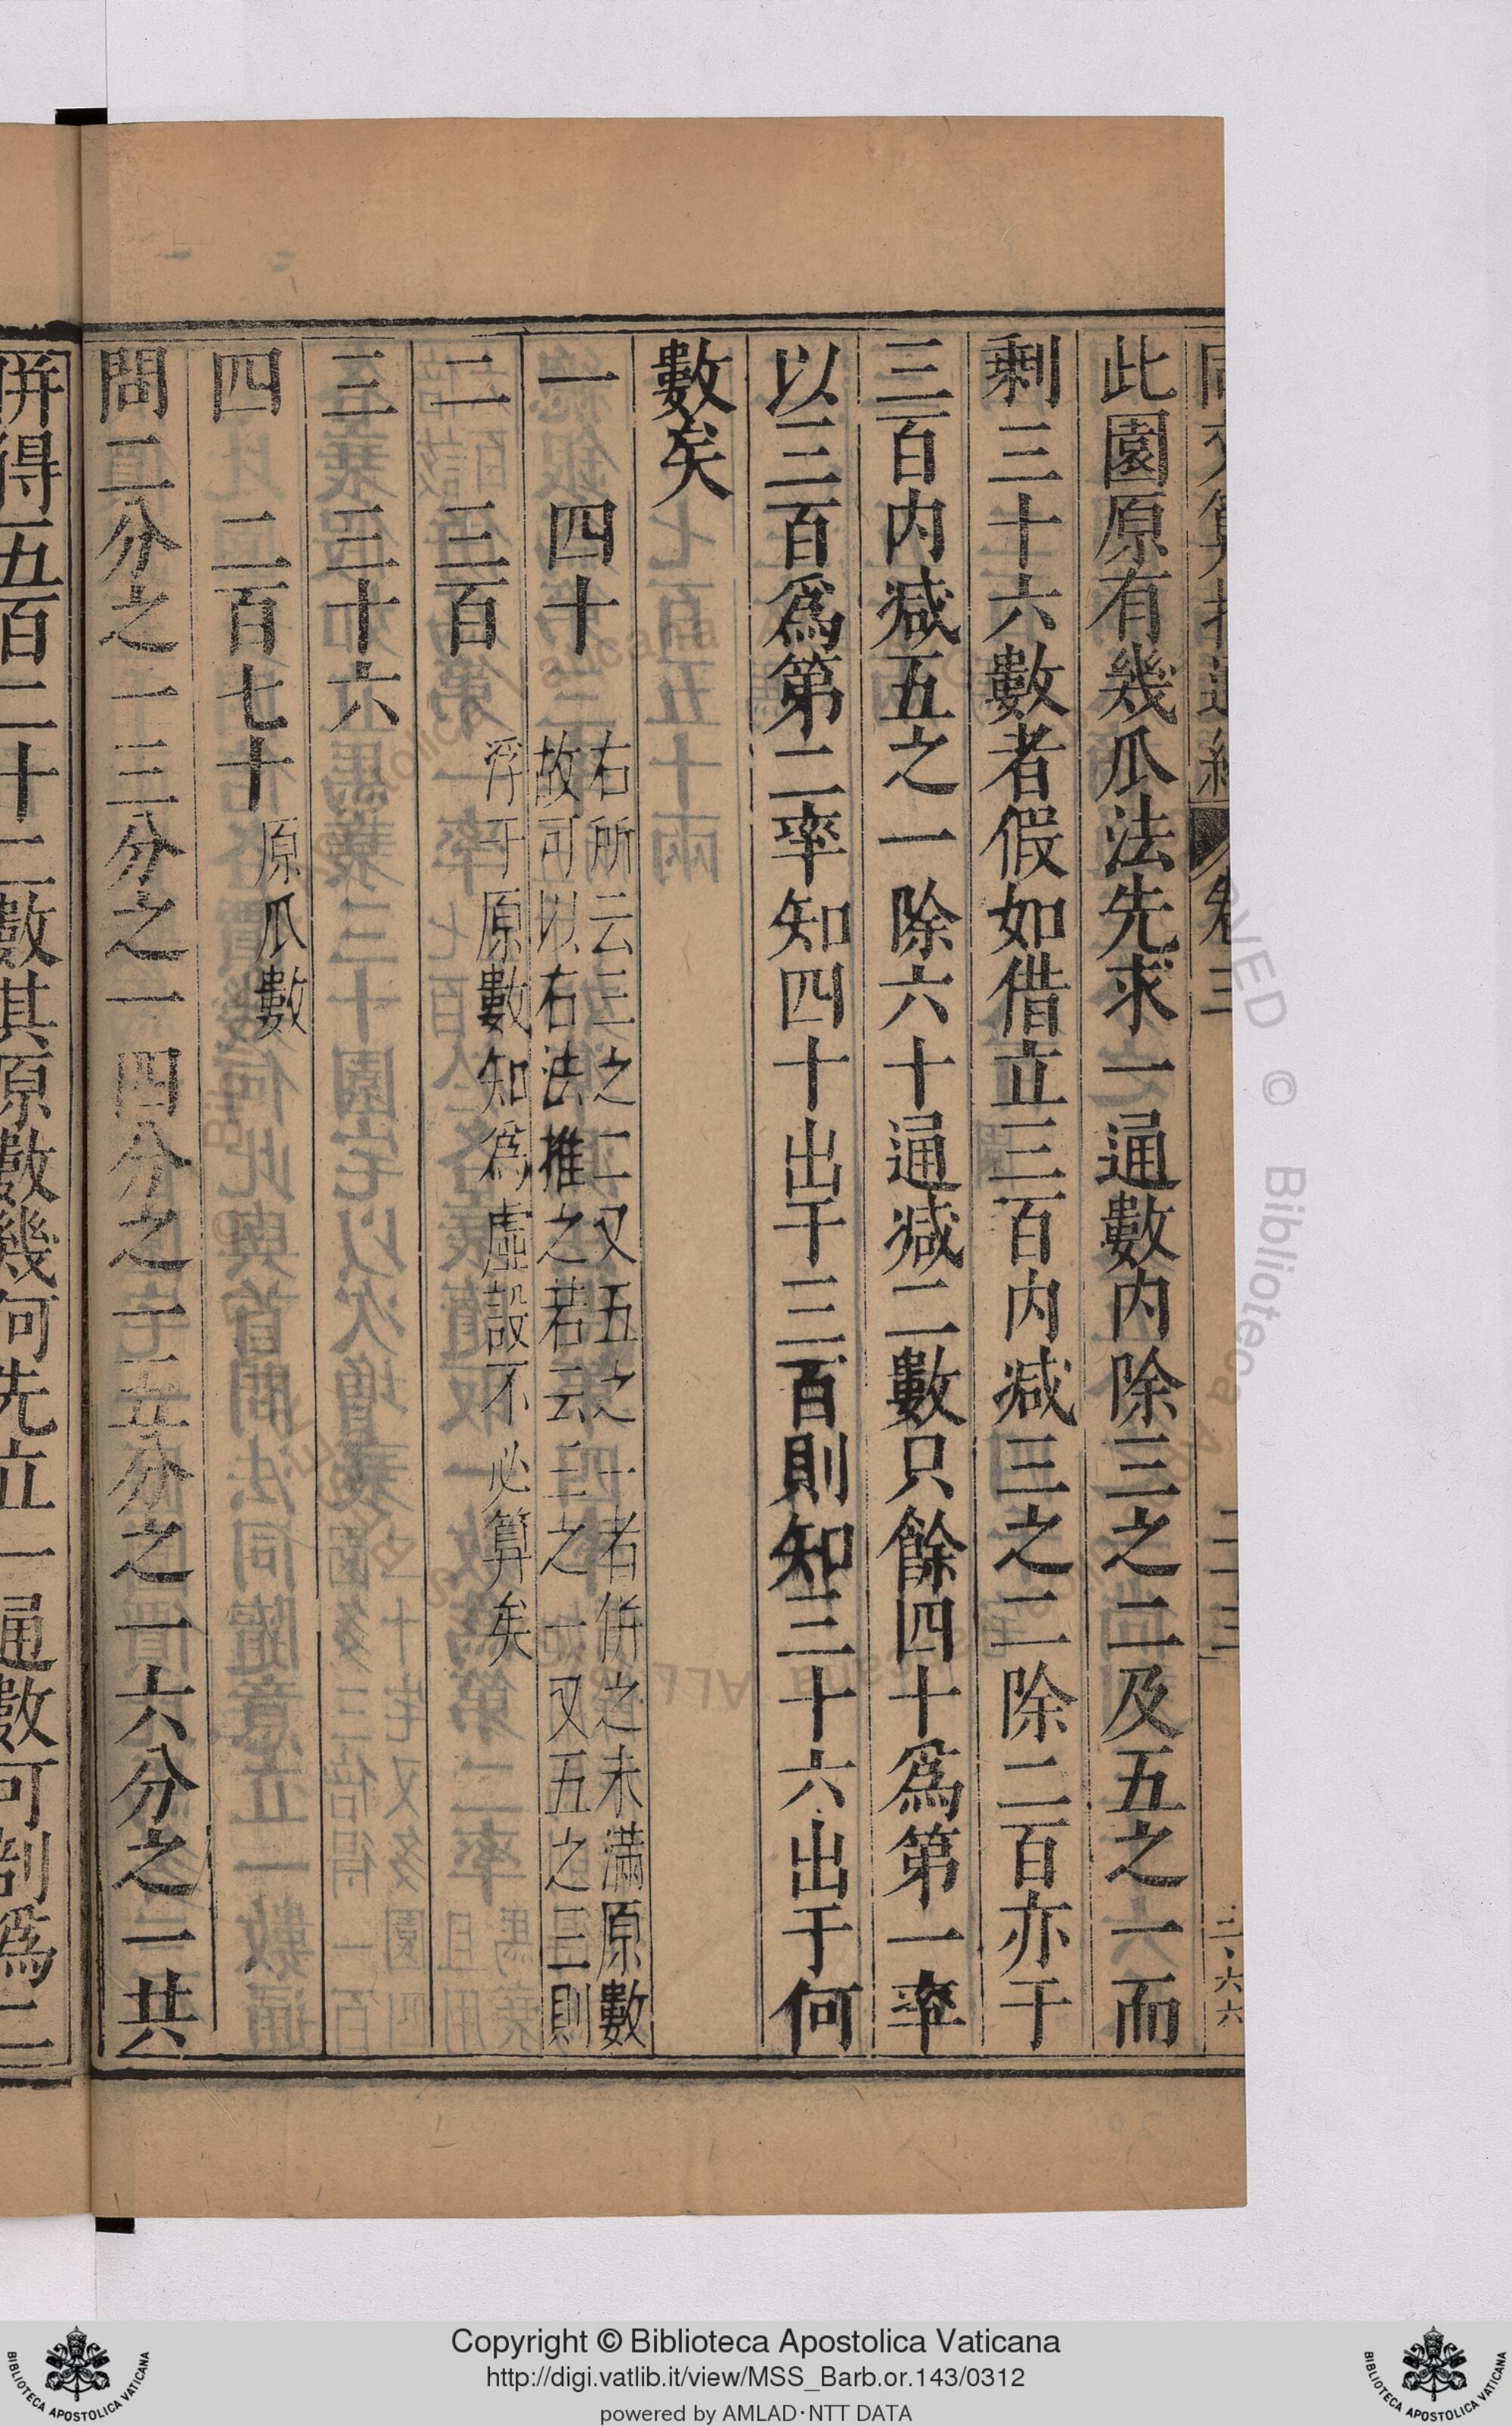 此園原有幾瓜法先求一通數内除三之二及五之一而
剩三十六數者假如借立三百内减三之二除二百亦于
三百内减五之一除六十通减二數只餘四十爲第一率
以三百爲第二率知四十出于三百則知三十六出于何
數矣
一 四十
右所云三之二又五之一者併之未滿原數
故可以右法推之若云三之一又五之三則
浮于原數知爲虛設不必算矣
二 三百
三 三十六
四 二百七十 原瓜數
問二分之一三分之一四分之一五分之一六分之一共
併得五百二十二數其原數幾何先立一通數可剖爲二
卷三
二十三
三六六
Copyright © Biblioteca Apostolica Vaticana
http://digi.vatlib.it/view/MSS_Barb.or.143/0312
powered by AMLAD·NTT DATA
BIBLIOTECA APOSTOLICA VATICANA
BIBLIOTECA APOSTOLICA VATICANA